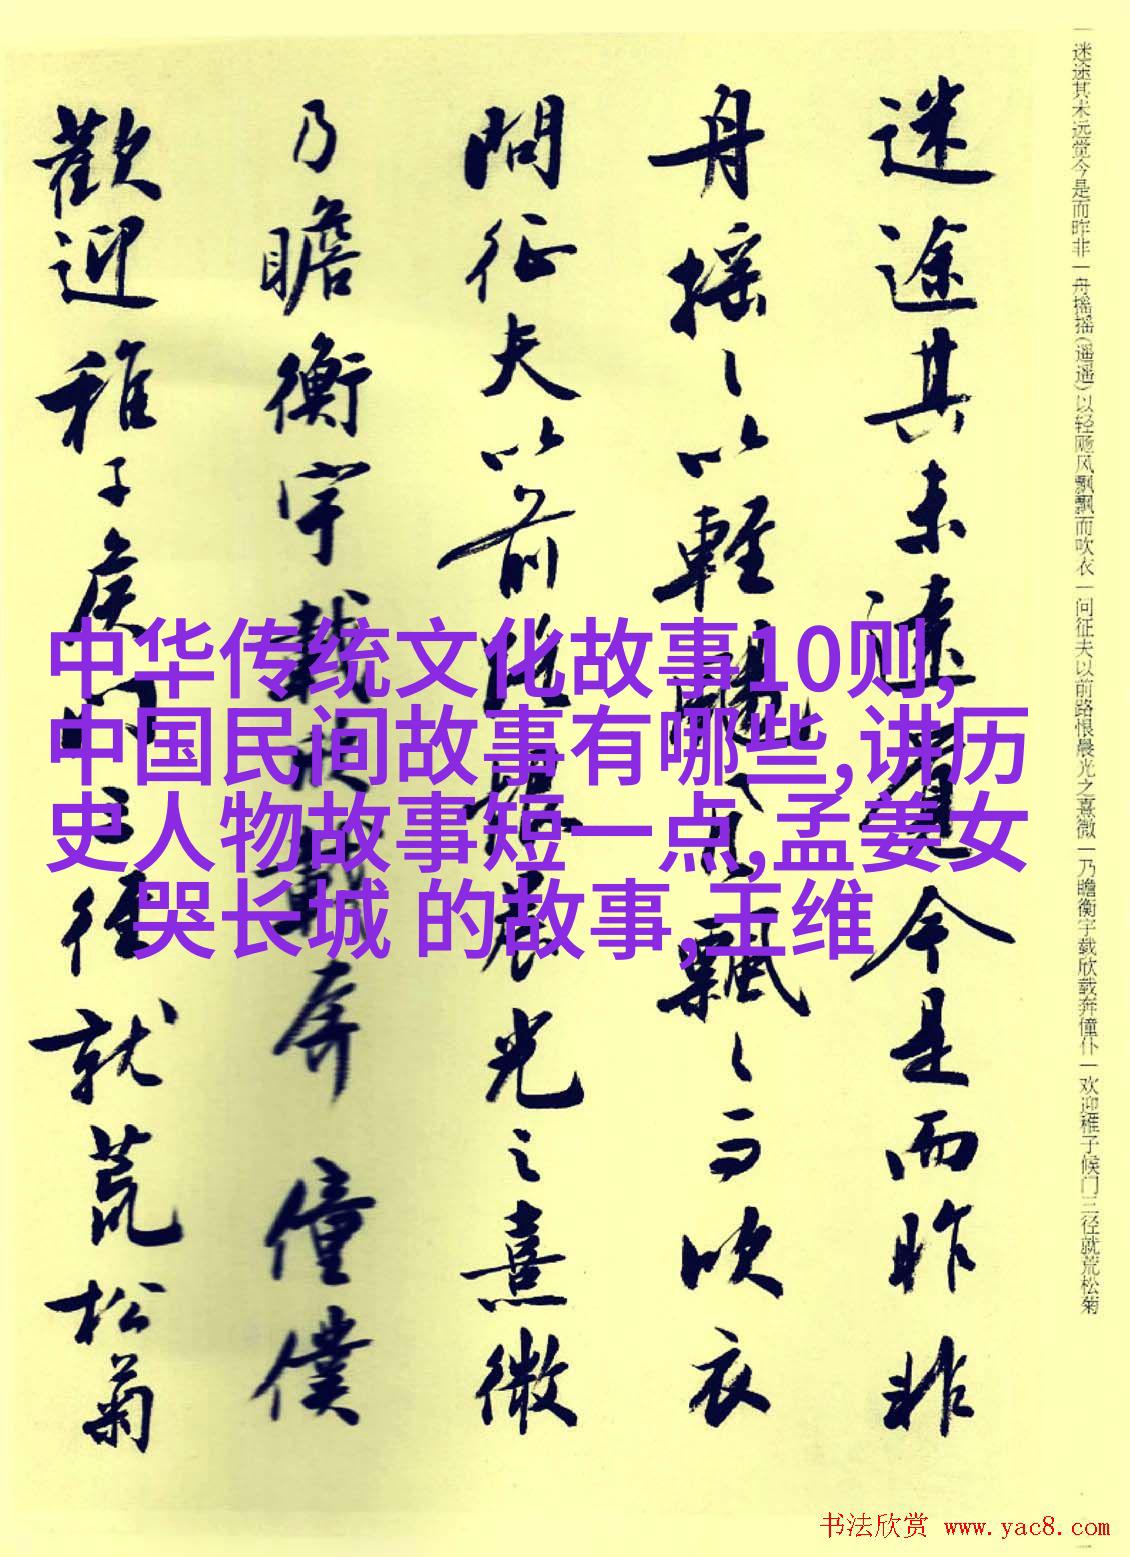 迷途其未远觉今是而昨非一舟摇摇(遥遥)以轻飏风飘飘而吹衣一问征夫以前路恨晨光之熹微一乃瞻衡宇载欣载奔僮仆一欢迎稚子候门三径就荒松菊
迷途其未遠覺今是而昨非
舟摇〻以輕颺風飄〻而吹衣
問征夫以前路恨晨光之熹微
乃瞻衡宇載欣載奔僮僕
歡迎稚子候門三徑就荒松菊
中华传统文化故事10则,
中国民间故事有哪些,讲历
史人物故事短一点,孟姜女
哭长城 的故事,王维
书法欣赏 www.yac8.com